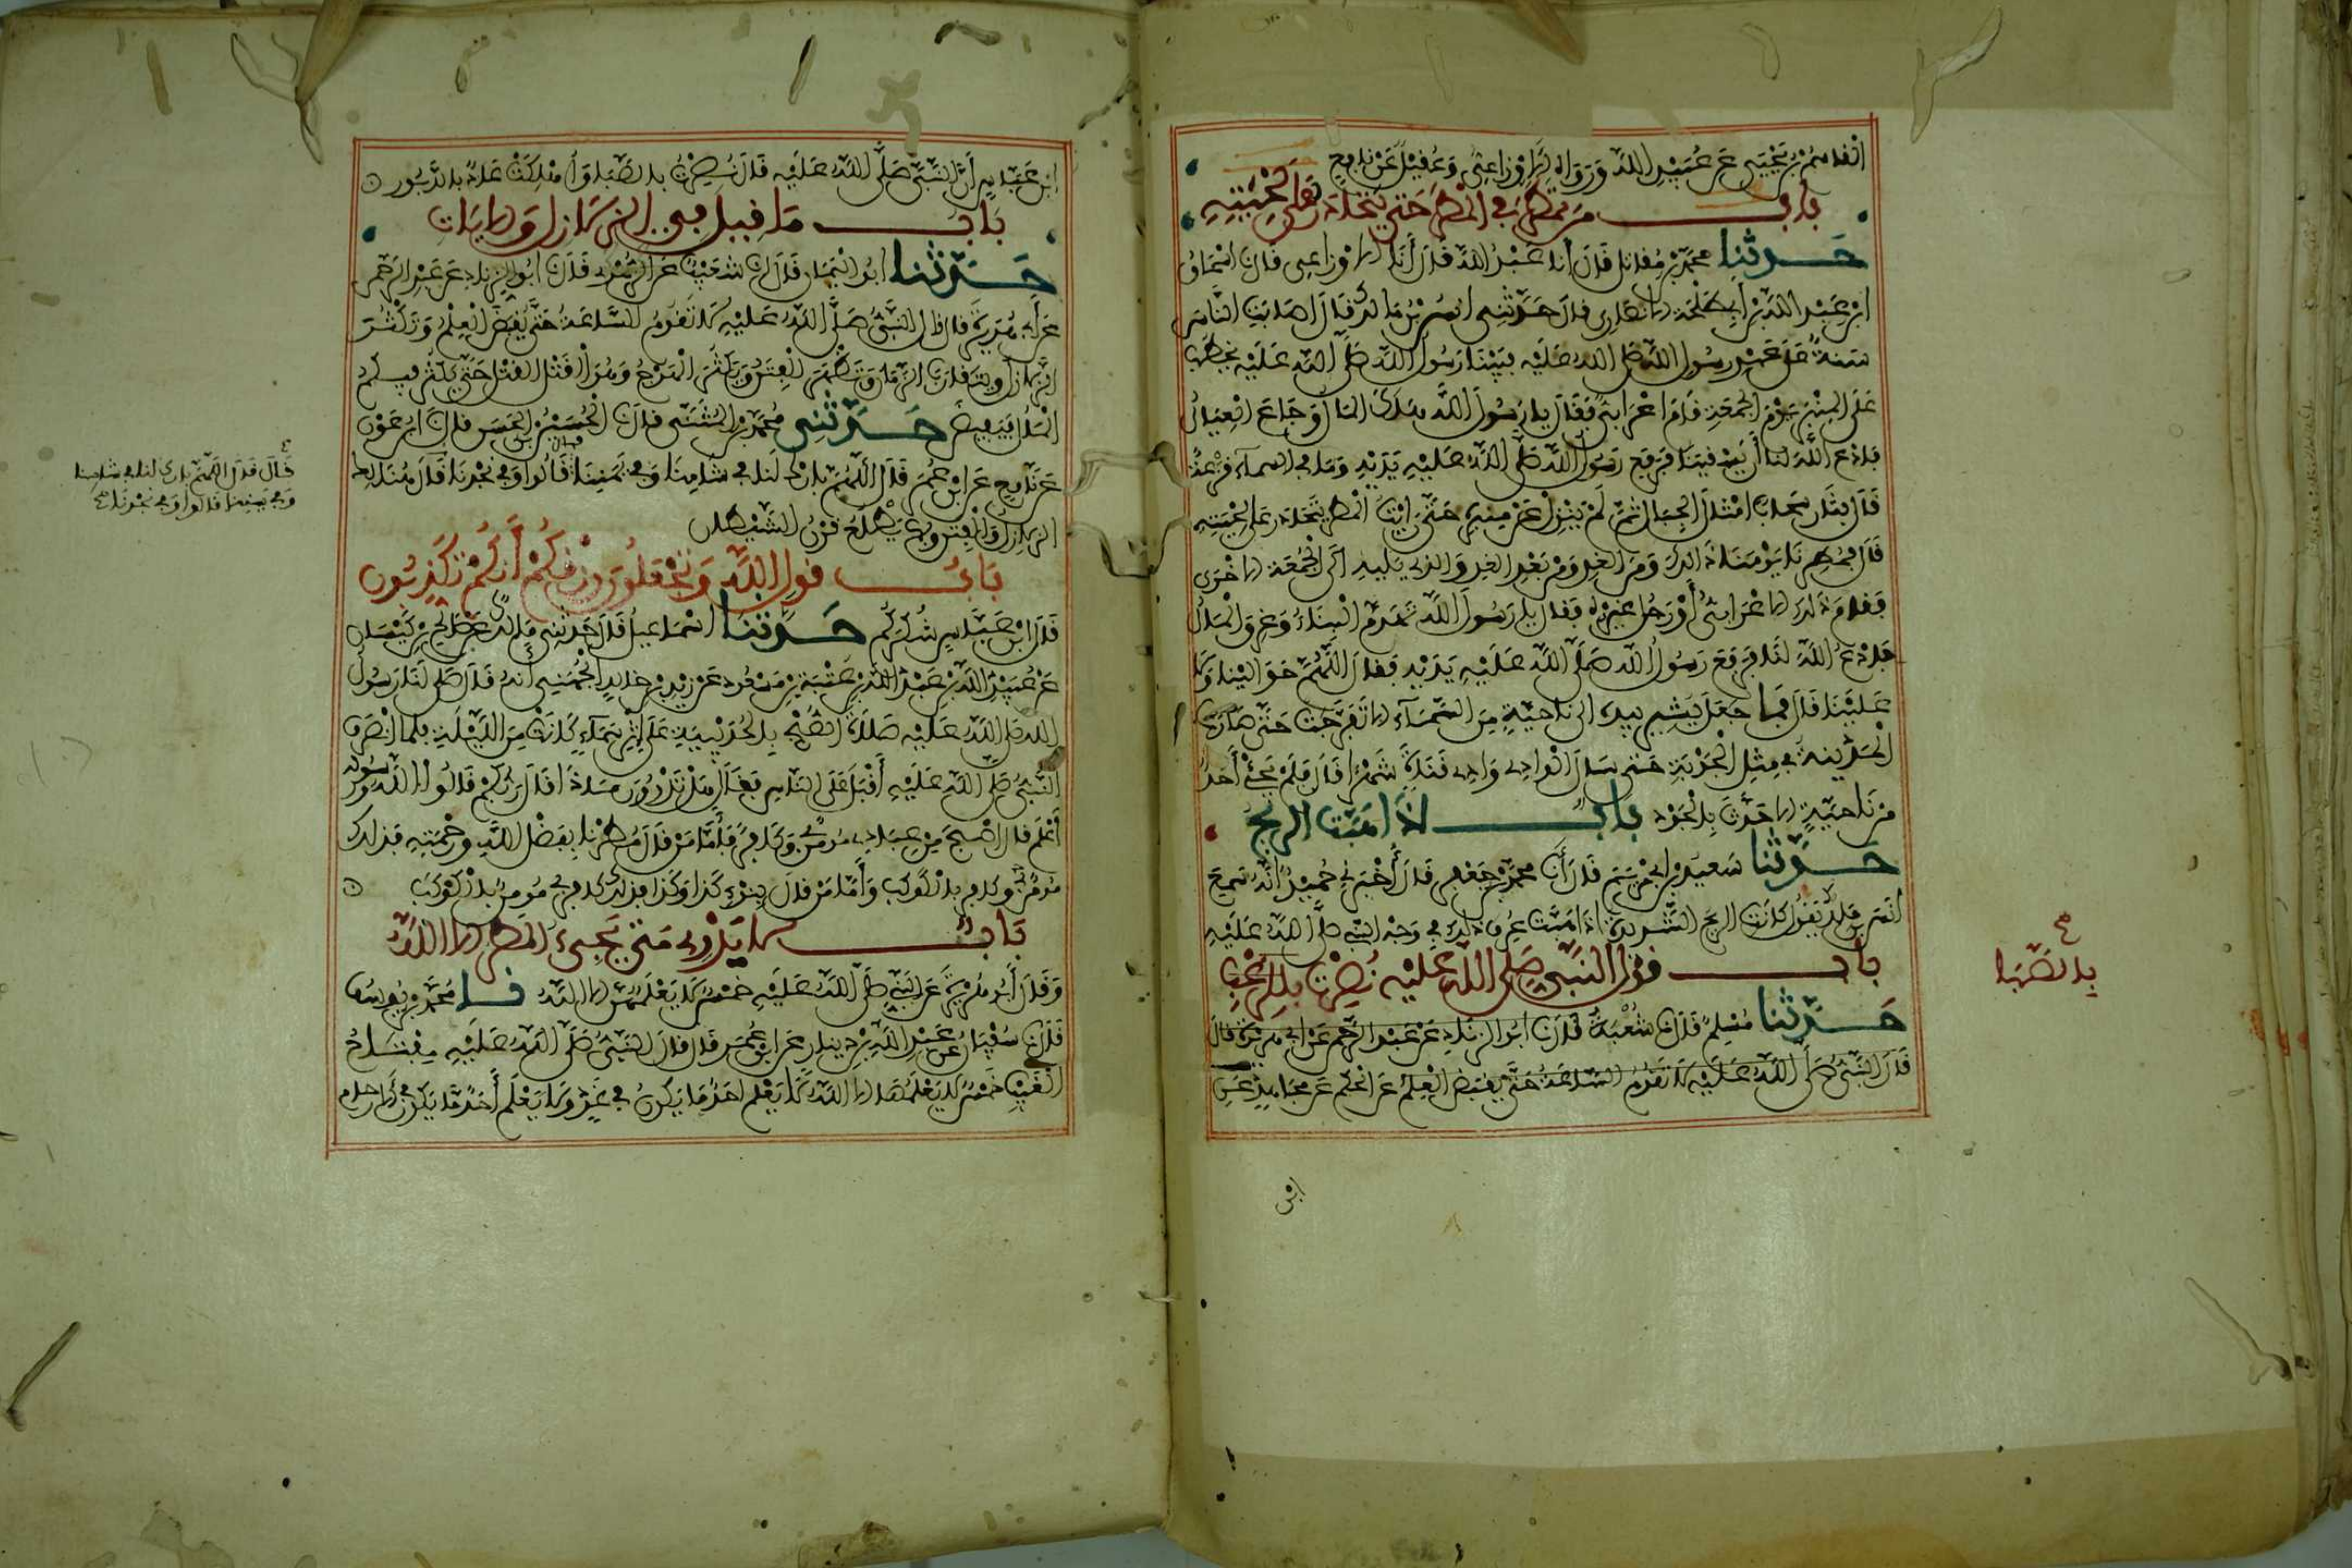 القاسم بن يحيى عن عبيد الله ورواه الاوزاعي وعقيل عن نافع
باب من تمطر في المطر حتى يتحادر على لحيته
حدثنا محمد بن مقاتل قال أنا عبد الله قال أنا الاوزاعي قال نا اسحاق
ابن عبد الله بن أبي طلحة الانصاري قال حدثني انس بن مالك قال اصابت الناس
سنة على عهد رسول الله صلى الله عليه فبينا رسول الله صلى الله عليه يخطب
على المنبر يوم الجمعة قام اعرابي فقال يا رسول الله هلك المال وجاع العيال
فادع الله لنا أن يسقينا فرفع رسول الله صلى الله عليه يديه وما في السماء قزعة
قال فثار سحاب امثال الجبال ثم لم ينزل عن منبره حتى رايت المطر يتحادر على لحيته
قال فمطرنا يومنا ذالك ومن الغد ومن بعد الغد والذي يليه الى الجمعة الاخرى
فقام ذالك الاعرابي أو رجل غيره فقال يا رسول الله تهدم البناء وغرق المال
فادع الله لنا فرفع رسول الله صلى الله عليه يديه فقال اللهم حوالينا ولا
علينا قال فما جعل يشير بيده الى ناحية من السماء الا تفرجت حتى صارت
المدينة في مثل الجوبة حتى سال الوادي وادي قناة شهرا قال فلم يجئ أحد
من ناحية الا حدث بالجود باب اذا هبت الريح
حدثنا سعيد بن أبي مريم قال أنا محمد بن جعفر قال أخبرني حميد أنه سمع
انس بن مالك يقول كانت الريح الشديدة اذا هبت عرف ذلك في وجه النبي صلى الله عليه
باب قول النبي صلى الله عليه نصرت بالرعب
بالصبا
حدثنا مسلم قال نا شعبة قال نا ابو الزناد عن عبد الرحمن عن ابي هريرة قال
قال النبي صلى الله عليه لا تقوم الساعة حتى يقبض العلم عن الحكم عن مجاهد عن
ابن
ابن عباس أن النبي صلى الله عليه قال نصرت بالصبا وأهلكت عاد بالدبور
باب ما قيل في الزلازل والايات
حدثنا ابو اليمان قال انا شعيب عن الزهري قال نا ابو الزناد عن عبد الرحمن
عن أبي هريرة قال قال النبي صلى الله عليه لا تقوم الساعة حتى يقبض العلم وتكثر
الزلازل ويتقارب الزمان وتظهر الفتن ويكثر الهرج وهو القتل القتل حتى يكثر فيكم
المال فيفيض حدثني محمد بن المثنى قال نا الحسين بن الحسن قال نا ابن عون
عن نافع عن ابن عمر قال اللهم بارك لنا في شامنا وفي يمننا قالوا وفي نجدنا قال هنالك
قال قال اللهم بارك لنا في شامنا
وفي يمننا قالوا وفي نجدنا
الزلازل والفتن وبها يطلع قرن الشيطان
باب قول الله وتجعلون رزقكم أنكم تكذبون
قال ابن عباس شكركم حدثنا اسماعيل قال حدثني مالك عن صالح بن كيسان
عن عبيد الله بن عبد الله بن عتبة بن مسعود عن زيد بن خالد الجهني أنه قال صلى لنا رسول
الله صلى الله عليه صلاة الصبح بالحديبية على إثر سماء كانت من الليلة فلما انصرف
النبي صلى الله عليه أقبل على الناس فقال هل تدرون ماذا قال ربكم قالوا الله ورسوله
أعلم قال اصبح من عبادي مومن وكافر فأما من قال مطرنا بفضل الله ورحمته فذلك
مومن وكافر بالكوكب وأما من قال بنوء كذا وكذا فذلك كافر بي مومن بالكوكب
باب لا يدري متى يجيء المطر الا الله
وقال أبو هريرة عن النبي صلى الله عليه خمس لا يعلمهن الا الله نا محمد بن يوسف
قال نا سفيان عن عبد الله بن دينار عن ابن عمر قال قال النبي صلى الله عليه مفتاح
الغيب خمس لا يعلمها الا الله لا يعلم احد ما يكون في غد ولا يعلم أحد ما يكون في الارحام